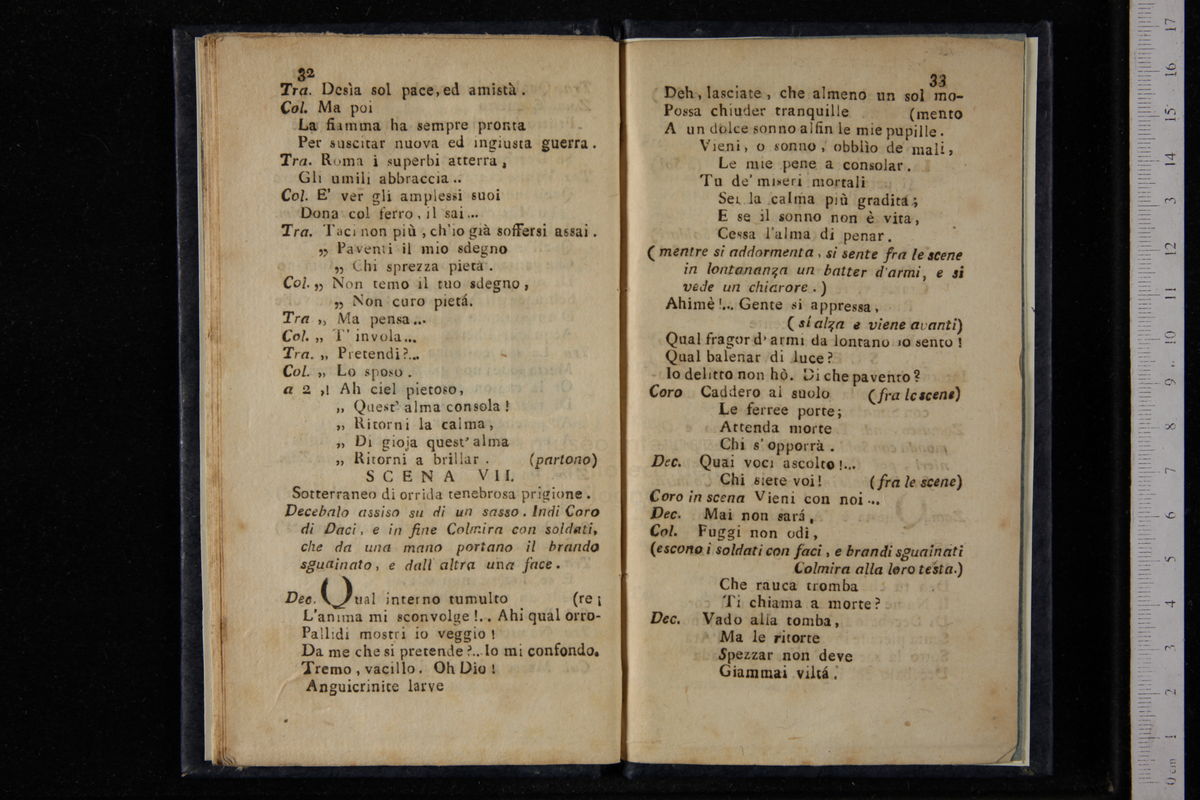 32
Tra. Desìa sol pace, ed amistà.
Col. Ma poi
La fiamma ha sempre pronta
Per suscitar nuova ed ingiusta guerra.
Tra. Roma i superbi atterra,
Gli umili abbraccia..
Col. E' ver gli amplessi suoi
Dona col ferro, il sai...
Tra. Taci non più, ch'io già soffersi assai.
„ Paventi il mio sdegno
„ Chi sprezza pietà.
Col. „ Non temo il tuo sdegno,
„ Non curo pietá.
Tra „ Ma pensa...
Col. „ T' invola...
Tra. „ Pretendi?...
Col. „ Lo sposo.
a 2 „! Ah ciel pietoso,
„ Quest' alma consola!
„ Ritorni la calma,
„ Di gioja quest' alma
„ Ritorni a brillar. (partono)
SCENA VII.
Sotterraneo di orrida tenebrosa prigione.
Decebalo assiso su di un sasso. Indi Coro
di Daci, e in fine Colmira con soldati,
che da una mano portano il brando
sguainato, e dall altra una face.
Dec. Qual interno tumulto (re;
L'anima mi sconvolge!.. Ahi qual orro-
Pallidi mostri io veggio!
Da me che si pretende?.. Io mi confondo.
Tremo, vacillo. Oh Dio!
Anguicrinite larve
33
Deh, lasciate, che almeno un sol mo-
Possa chiuder tranquille (mento
A un dolce sonno alfin le mie pupille.
Vieni, o sonno, obblìo de mali,
Le mie pene a consolar.
Tu de' miseri mortali
Sei la calma più gradita;
E se il sonno non è vita,
Cessa l'alma di penar.
(mentre si addormenta, si sente fra le scene
in lontananza un batter d'armi, e si
vede un chiarore.)
Ahimè!... Gente si appressa,
(si alza e viene avanti)
Qual fragor d' armi da lontano io sento!
Qual balenar di luce?
Io delitto non hò. Di che pavento?
Coro Caddero al suolo (fra le scene)
Le ferree porte;
Attenda morte
Chi s' opporrà.
Dec. Quai voci ascolto!...
Chi siete voi! (fra le scene)
Coro in scena Vieni con noi...
Dec. Mai non sará,
Col. Fuggi non odi,
(escono i soldati con faci, e brandi sguainati
Colmira alla loro testa.)
Che rauca tromba
Ti chiama a morte?
Dec. Vado alla tomba,
Ma le ritorte
Spezzar non deve
Giammai viltá.
0 cm 1 2 3 4 5 6 7 8 9 10 11 12 13 14 15 16 17